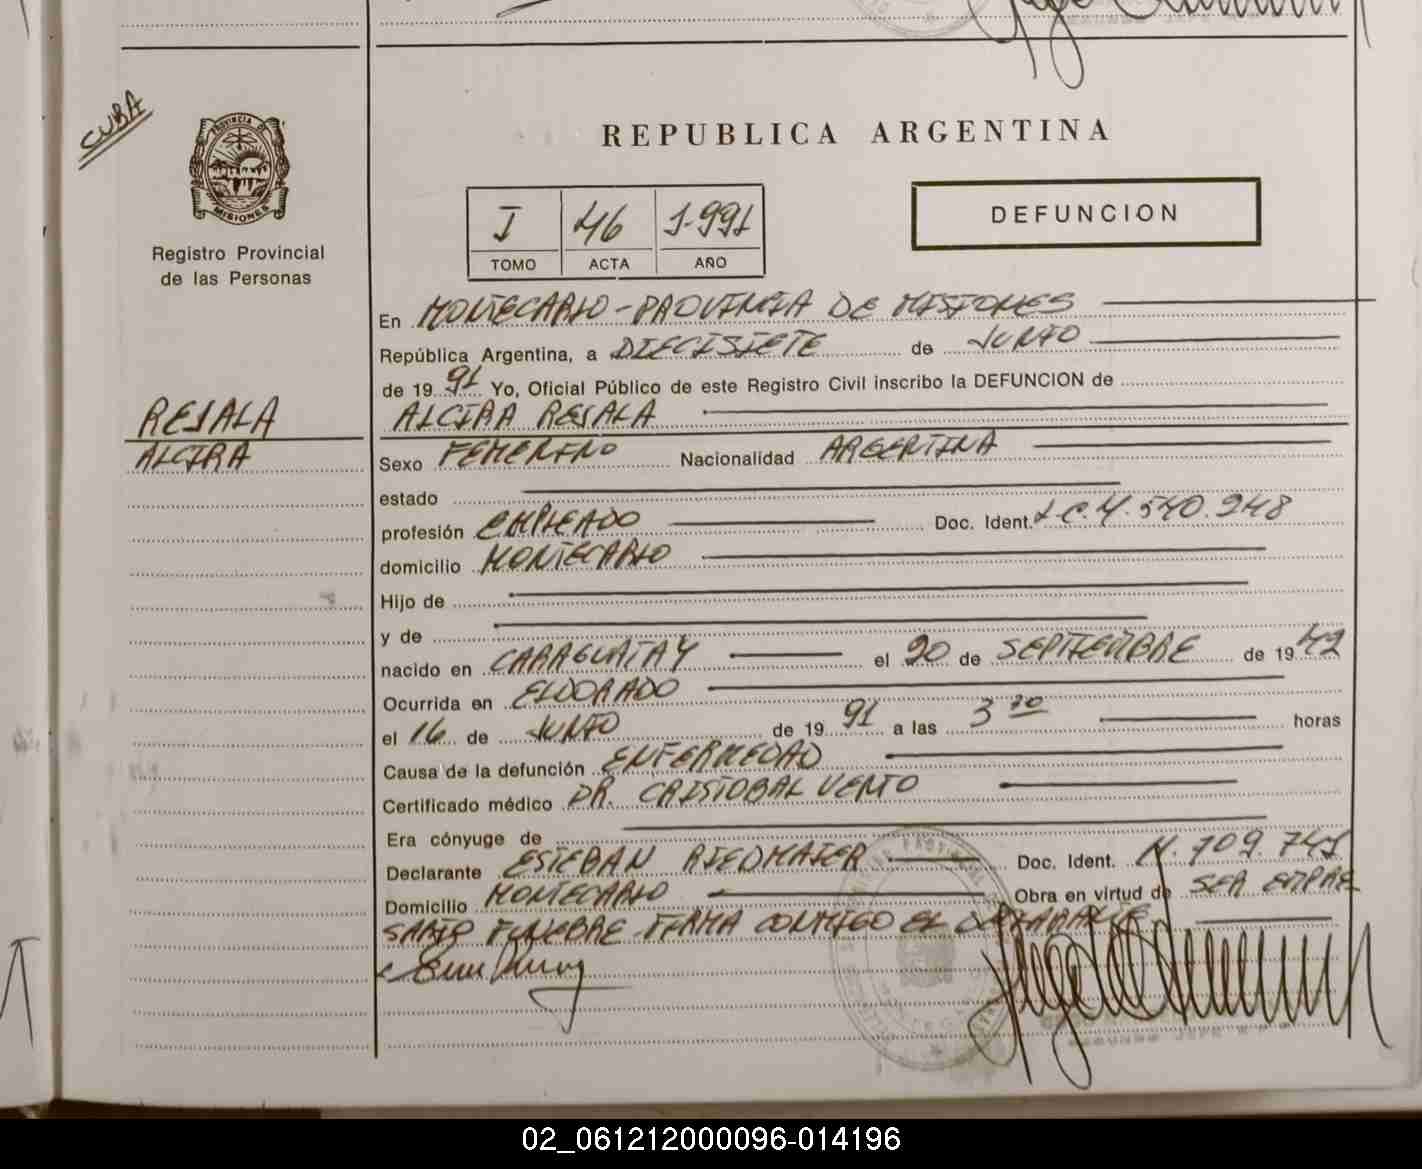 CUBA
PROVINCIA DE
MISIONES
Registro Provincial
de las Personas
REPUBLICA ARGENTINA
I 46 1-991
TOMO ACTA AÑO
DEFUNCION
En MONTECARLO-PROVINCIA DE MISIONES
República Argentina, a DIECISIETE de JUNIO
de 19 91 Yo, Oficial Público de este Registro Civil inscribo la DEFUNCION de
RESALA
ALCIRA RESALA
ALCIRA
Sexo FEMENINO Nacionalidad ARGENTINA
estado
profesión EMPLEADO Doc. Ident. L.C.4.540.248
domicilio MONTECARLO
Hijo de
y de
nacido en CARAGUATAY el 20 de SEPTIEMBRE de 19 42
Ocurrida en ELDORADO
el 16 de JUNIO de 19 91 a las 3 horas
Causa de la defunción ENFERMEDAD
Certificado médico DR. CRISTOBAL VENTO
Era cónyuge de
Declarante ESTEBAN RIEDMAIER Doc. Ident. 709.741
Domicilio MONTECARLO Obra en virtud de SER EMPRE
SARIO FUNEBRE FIRMA CONMIGO EL
02_061212000096-014196